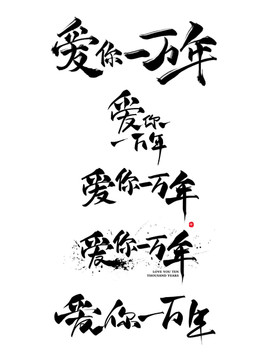 爱你一万年
爱你
一万年
爱你一万年
爱你一万年
LOVE YOU TEN
THOUSAND YEARS
爱你一万年